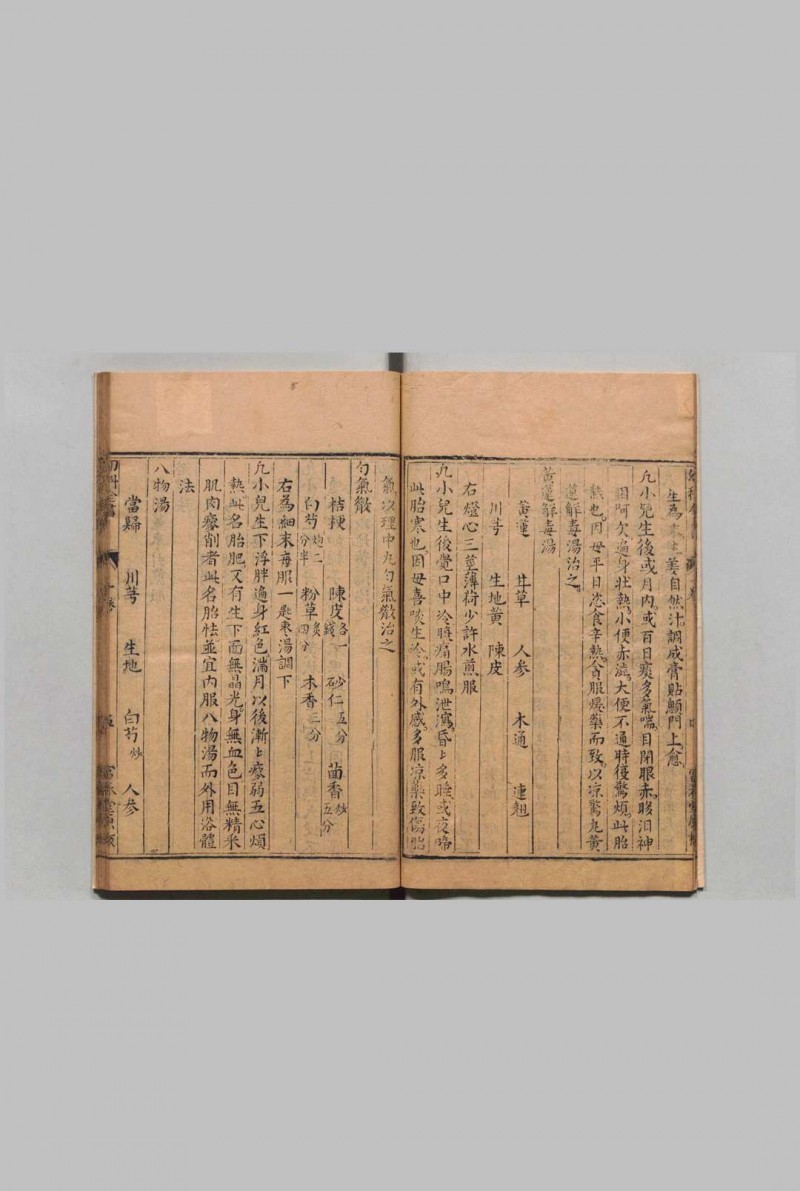 生為末生姜自然汁調成膏貼顖門上愈
凢小兒生後或月內或百日痰多氣喘目閉眼赤眵泪神
困阿欠遍身壯熱小便赤澁大便不通時復驚煩此胎
熱也因母平日恣食辛熱貪服煖藥而致以凉驚丸黃
連解毒湯治之
黃連解毒湯
黃連 甘草 人参 木通 連翹
川芎 生地黃 陳皮
右燈心三莖薄荷少許水煎服
凢小兒生後覺口中冷腹痛腸鳴泄瀉昏昏多睡或夜啼
此胎寒也因母喜啖生冷或有外感多服凉藥致傷胎
氣以理中丸勻氣散治之
勻氣散
桔梗 陳皮各一錢 砂仁五分 茴香炒五分
白芍炮二分半 粉草炙四分 木香三分
右為細末每服一匙枣湯調下
凢小兒生下浮胖遍身紅色滿月以後漸漸瘦弱五心煩
熱此名胎肥又有生下面無晶光身無血色目無精采
肌肉瘦削者此名胎怯並宜內服八物湯而外用浴體
法
八物湯
當歸 川芎 生地 白芍炒 人参